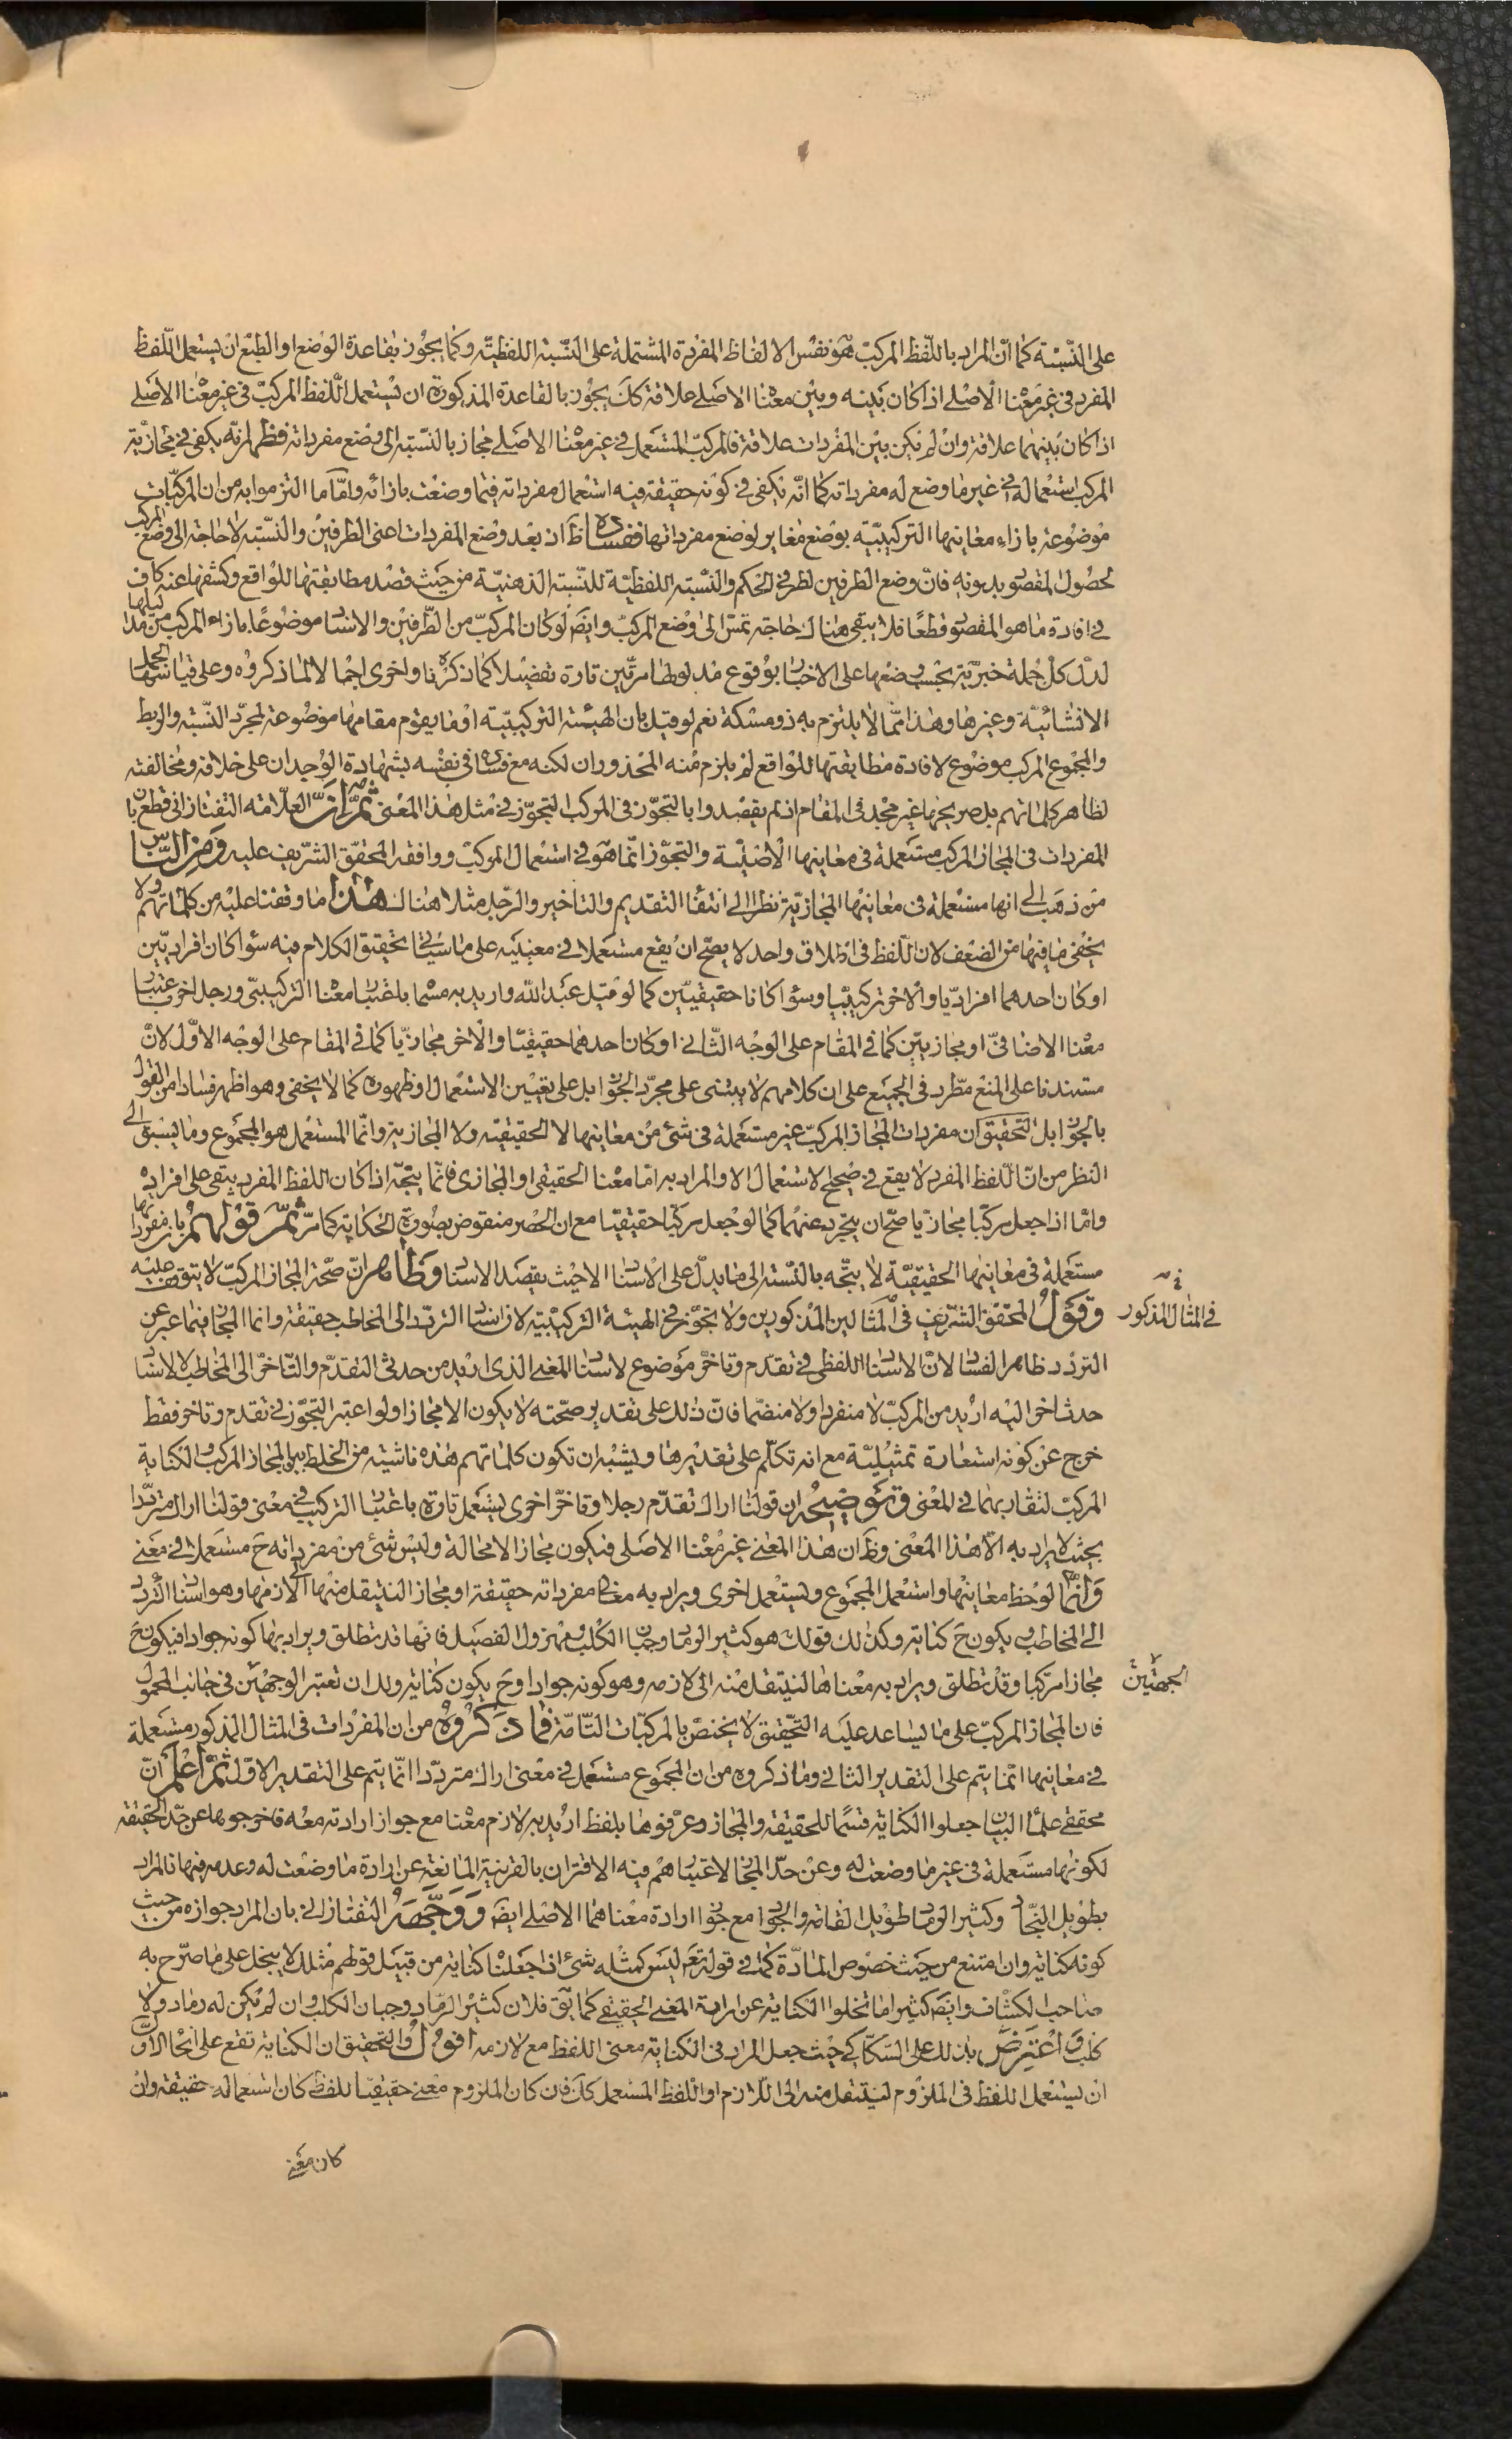 على النّسبة كما انّ المراد باللّفظ المركّب هو نفس الالفاظ المفردة المشتملة على النّسبة اللفظيّة وكما يجوز بقاعدة الوضع او الطبع ان يستعمل اللّفظ
المفرد فى غير معناه الاصلى اذا كان بينه وبين معناه الاصلى علاقة كك يجوز بالقاعدة المذكورة ان يستعمل اللّفظ المركّب فى غير معناه الاصلى
اذا كان بينهما علاقة وان لم تكن بين المفردات علاقة فالمركّب المستعمل فى غير معناه الاصلى مجاز بالنّسبة الى وضع مفرداته فظهر انّه يكفى فى مجازيّة
المركب استعماله فى غير ما وضع له مفرداته كما انّه يكفى فى كونه حقيقة فيه استعمال مفرداته فيما وضعت بازائه وامّا ما التزموا به من ان المركّبات
موضوعة بازاء معانيها التركيبيّة بوضع مغاير لوضع مفرداتها ففساده ظ اذ بعد وضع المفردات اعنى الطرفين والنّسبة لا حاجة الى وضع المركب
لحصول المقصو بدونه فانّ وضع الطرفين لطرفى الحكم والنّسبة اللفظيّة للنّسبة الذهنيّة من حيث قصد مطابقتها للواقع وكشفها عنه كاف
فى افادة ما هو المقصو قطعًا فلا يبقى هناك حاجة تمسّ الى وضع المركّب وايضَ لو كان المركّب من الطّرفين والاسنا موضوعًا بازاء المركب من مدا ليلها
لدلّ كل جملة خبريّة بحسب وضعها على الاخبا بوقوع مدلولها مرّتين تارة تفصيلا كما ذكرنا واخرى اجما لا لما ذكروه وعلى قياسها الجمل
الانشائيّة وغيرها وهذا ممّا لا يلتزم به ذو مسكة نعم لو قيل بان الهيئة التركيبيّة او ما يقوم مقامها موضوعة لمجرّد النّسبة والربط
والمجموع المركب موضوع لافادة مطابقتها للواقع لم يلزم منه المحذور ان لكنه مع فسا ده فى نفسه بشهادة الوجدان على خلافه ومخالفته
لظاهر كلماتهم بل صريحها غير مجد فى المقام اذ لم يقصدوا بالتجوّز فى المركب التجوّز فى مثل هذا المعنى ثمّ انّ العلّامة التفتازانى قطع بان
المفردات فى المجاز المركب مستعملة فى معانيها الاصليّة والتجوّز انّما هو فى استعمال المركب ووافقه المحقّق الشّريف عليه ومن النّاس
من ذهب الى انها مستعملة فى معانيها المجازيّة نظرا الى انتفا التقديم والتاخير والرّجل مثلا هناك هذا ما وقفنا عليه من كلماتهم ولا
يخفى ما فيها من الضعف لان اللّفظ فى اطلاق واحد لا يصحّ ان يقع مستعملا فى معنييه على ما سيا تى تحقيق الكلام فيه سوا كان افراديّين
او كان احدهما افراديّا والاخر تركيبيّا وسوا كانا حقيقيّين كما لو قيل عبد الله واريد به مسمّا باعتبا معناه التركيبىّ ورجل اخر باعتبا
معناه الاضافىّ او مجازيين كما فى المقام على الوجه الثّانى او كان احدهما حقيقيّا والاخر مجازيّا كما فى المقام على الوجه الاوّل لانّ
مستندنا على المنع مطّرد فى الجميع على ان كلامهم لا يبتنى على مجرّد الجوا ز بل على تعيين الاستعمال وظهوره كما لا يخفى وهو اظهر فسادا من القول
بالجوا ز بل التحقيق ان مفردات المجاز المركّب غير مستعملة فى شئ من معانيها لا الحقيقيّة ولا المجازية وانّما المستعمل هو المجموع وما يسبق الى
النظر من انّ اللّفظ المفرد لا يقع فى صحيح الاستعمال الا والمراد به امّا معناه الحقيقى او المجازى فانّما يتجّه اذا كان اللفظ المفرد يبقى على افراده
وامّا اذا جعل مركّبا مجازيا صحّ ان يتجرد عنهما كما لو جعل مركّبا حقيقيّا مع ان الحصر منقوض بصورة الحكاية كما مرّ ثمّ قولهم بان مفرداتها
مستعملة فى معانيها الحقيقيّة لا يتّجه بالنّسبة الى ما يدلّ على الاسنا الا حيث يقصد الاسنا وظاهر انّ صحّة المجاز المركّب لا يتوقف عليه
وقول المحقّق الشّريف فى المثالين المذكورين ولا تجوّز فى الهيئة التركيبيّة لان اسنا التردّد الى المخاطب حقيقة وانما المجا ز فيما عبّر عن
فى المثال المذكور
التردّد ظاهر الفسا لانّ الاسنا اللفظى فى تقدّم وتاخّر موضوع لاسنا المعنى الذى اريد من حدثى التقدّم والتّاخّر الى المخاطب لا لاسنا
حدث اخر اليه اريد من المركّب لا منفردا ولا منضمّا فانّ ذلك على تقدير صحّته لا يكون الا مجازا ولو اعتبر التجوّز فى تقدم وتاخر فقط
خرج عن كونه استعارة تمثيليّة مع انه تكلّم على تقديرها ويشبه ان تكون كلماتهم هذه ناشئة من الخلط بين المجاز المركب والكناية
المركّب لتقاربهما فى المعنى وتوضيحه ان قولنا اراك تقدّم رجلا وتؤخّر اخرى يستعمل تارة باعتبا التركيب فى معنى قولنا اراك متردّدا
بحيث لا يراد به الّا هذا المعنى وظَ ان هذا المعنى غير معناه الاصلى فيكون مجازا لا محالة وليس شئ من مفرداته حَ مستعملا فى معنى
وانّما لوحظ معانيها واستعمل المجموع ويستعمل اخرى ويراد به معانى مفرداته حقيقة او مجازا لينتقل منها الى لازمها وهو اسنا التّردد
الى المخاطب ويكون حَ كناية وكذلك قولك هو كثير الرما وجبا الكلب ومهزول الفصيل فانها قد تطلق ويراد بها كونه جوادا فيكون حَ
مجازا مركّبا وقد تطلق ويراد به معناها لينتقل منه الى لازمه وهو كونه جوادا وحَ يكون كناية ولك ان تعتبر الوجهين فى جانب المحمول
الجهتين
فان المجاز المركّب على ما يساعد عليه التّحقيق لا يختصّ بالمركبّات التّامّة فما ذكروه من ان المفردات فى المثال المذكور مستعملة
فى معانيها انّما يتم على التقدير الثانى وما ذكروه من ان المجموع مستعمل فى معنى اراك متردّدا انّما يتم على التقدير الاوّل ثمّ اعلم انّ
محققى علما البيان جعلوا الكناية قسمًا للحقيقة والمجاز وعرّفوها بلفظ اريد به لازم معناه مع جواز ارادته معه فاخرجوها عن حدّ الحقيقة
لكونها مستعملة فى غير ما وضعت له وعن حدّ المجا ز لاعتبا هم فيه الاقتران بالقرينة المانعة عن ارادة ما وضعت له وعدمه فيها فالمراد
بطويل النّجا وكثير الرما طويل القامة والجوا مع جوا ارادة معناهما الاصلى ايضَ ووجّهه التفتازانى بان المراد جوازه من حيث
كونه كناية وان امتنع من حيث خصوص المادّة كما فى قوله تعَ ليس كمثله شئ اذا جعلناه كناية من قبيل قولهم مثلك لا يبخل على ما صرّح به
صاحب الكشّاف وايضَ كثيرا ما تخلو الكناية عن ارادة المعنى الحقيقى كما يقَ فلان كثير الرّماد وجبان الكلب وان لم يكن له رماد ولا
كلب واعترض بذلك على السّكّاكى حيث جعل المراد فى الكناية معنى اللفظ مع لازمه اقول والتحقيق ان الكناية تقع على انحا الاوّل
ان يستعمل اللفظ فى الملزوم لينتقل منه الى اللّازم او اللفظ المستعمل كك فان كان الملزوم معنى حقيقيّا للفظ كان استعماله حقيقة وان
كان معنى